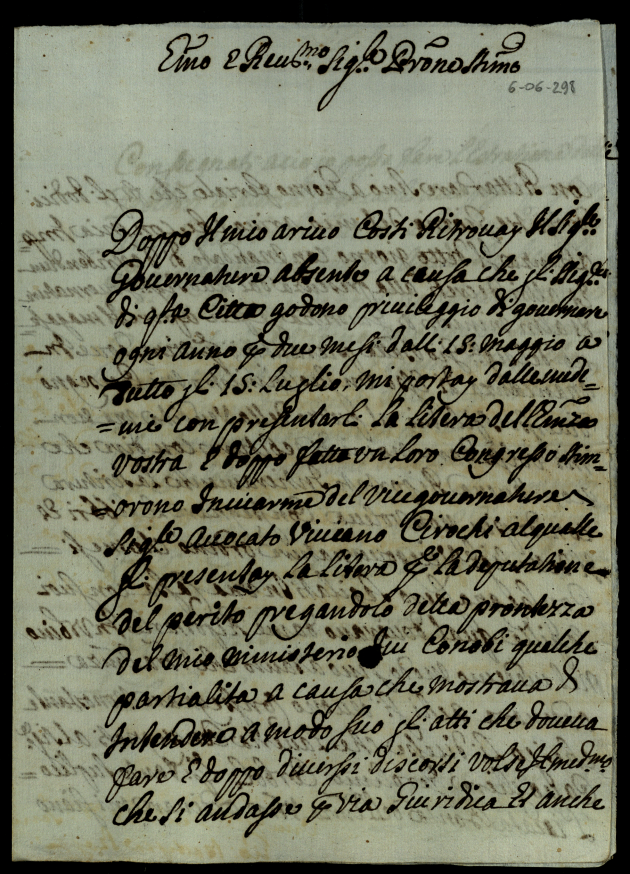 Emo e Reumo Sigre Prone Stimo
6-06-298
Doppo Il mio ariuo Costi Ritrouay Il Sigre
Gouernatore absente a causa che gl: Sigri
di qsta Citta godono priuileggio di gouernare
ogni anno p due mesi dall: 15: maggio a
tutto gl: 15: Luglio, mi portay dalle mede=
=me con presentarli la litera dell Emza
vostra E doppo fatto vn loro Congresso stim=
=orono Inuiarme del vicegouernatore
Sigre Auocato Viuiano Cirochi al qualle
gl: presentay la litera p la deputatione
del perito pregandolo della prontezza
del mio ministerio, Iui Conobi qualche
partialita a causa che mostraua di
Intendere a modo suo gl: atti che doueua
fare E doppo diuerssi discorsi volse Il medmo
che si andasse p via Giuridica Et anche